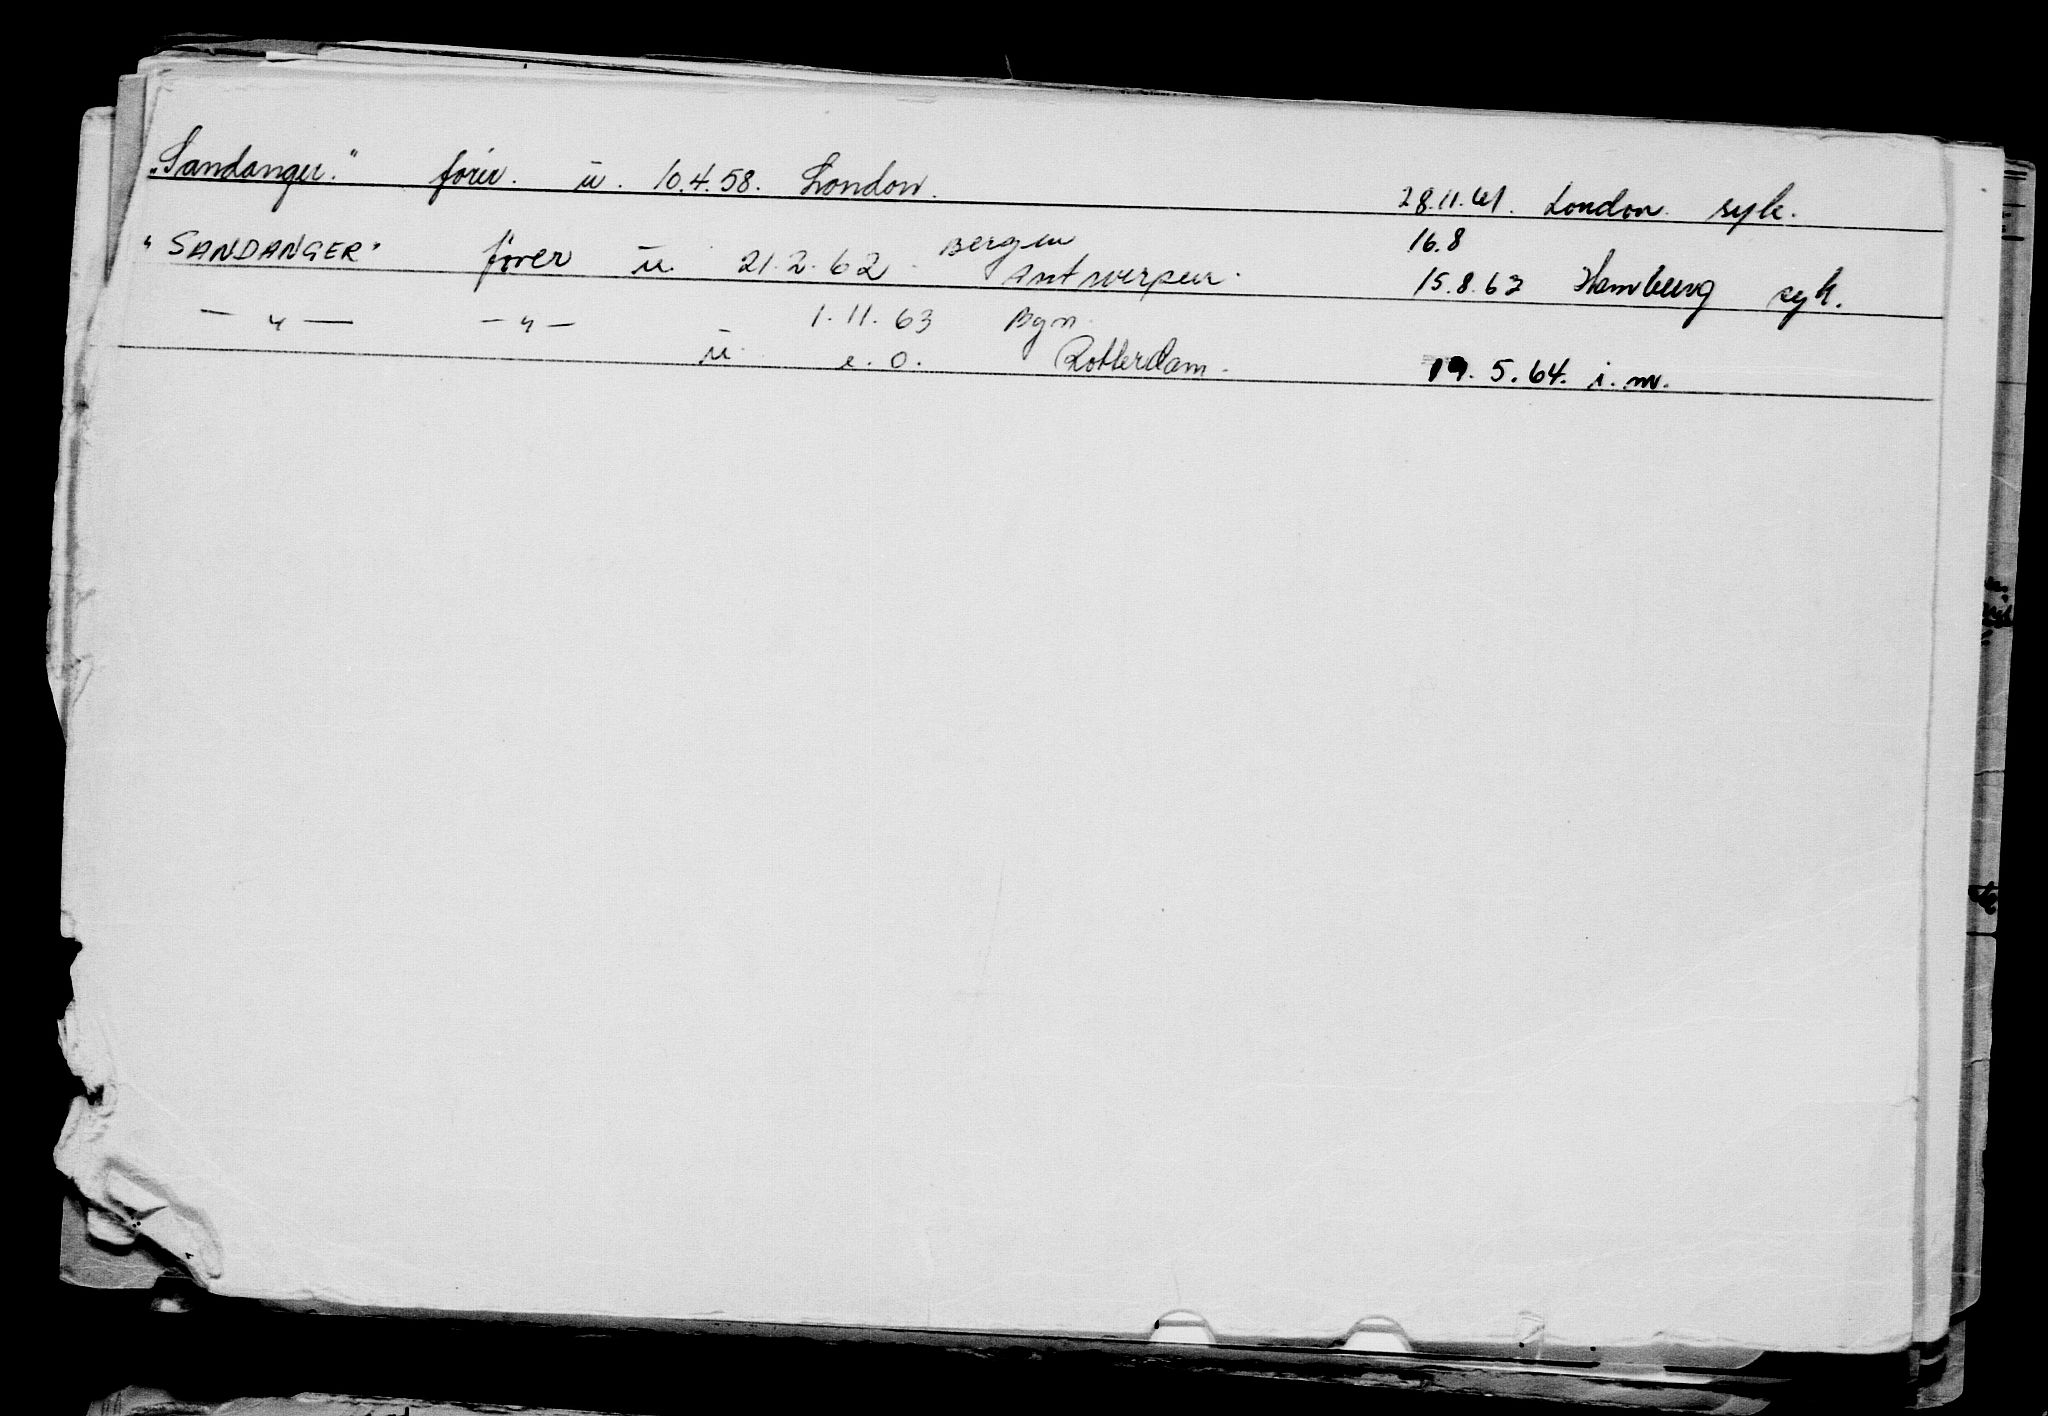 „Sandanger." förer. u. 10.4.58. London. 28.11.61. London. syk.
"SANDANGER" förer u. 21.2.62. Bergen 16.8
Antwerpen. 15.8.63 Hamburg syk.
— " — — " — 1.11.63 Bgn.
u. e.o. Rotterdam. 19.5.64. i.m.